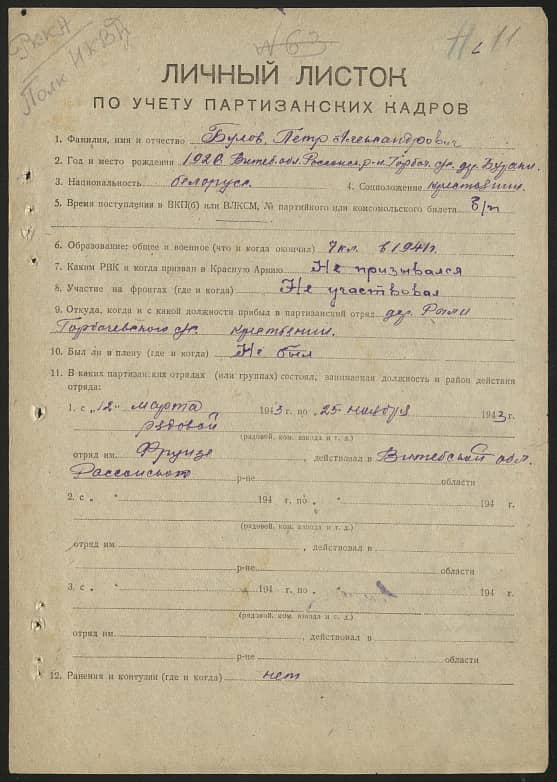 РККА
Полк НКВД
№ 63
11
ЛИЧНЫЙ ЛИСТОК
ПО УЧЕТУ ПАРТИЗАНСКИХ КАДРОВ
1. Фамилия, имя и отчество Булов, Пётр Александрович
2. Год и место рождения 1926. Витеб. обл. Россонск. р-н. Горбач. с/с. др.
3. Национальность белорусс. 4. Соцположение крестьянин.
5. Время поступления в ВКП(б) или ВЛКСМ, № партийного или комсомольского билета б/п
6. Образование: общее и военное (что и когда окончил) 7 кл. в 1941 г.
7. Каким РВК и когда призван в Красную Армию Не призывался
8. Участие на фронтах (где и когда) Не участвовал
9. Откуда, когда и с какой должности прибыл в партизанский отряд дер. Рыли
Горбачевского с/с. крестьянин.
10. Был ли в плену (где и когда) Не был
11. В каких партизанских отрядах (или группах) состоял, занимаемая должность и район действия
отряда:
1. с „12" марта 1943 г. по „25 ноября 1943 г.
рядовой
(рядовой, ком. взвода и т. д.)
отряд им. Фрунзе, действовал в Витебской обл.
Россонском р-не области
2. с „ " 194 г. по „ " 194 г.
(рядовой, ком. взвода и т. д.)
отряд им. , действовал в
р-не области
3. с „ " 194 г. по „ " 194 г.
(рядовой, ком. взвода и т. д.)
отряд им. , действовал в
р-не области
12. Ранения и контузии (где и когда) нет